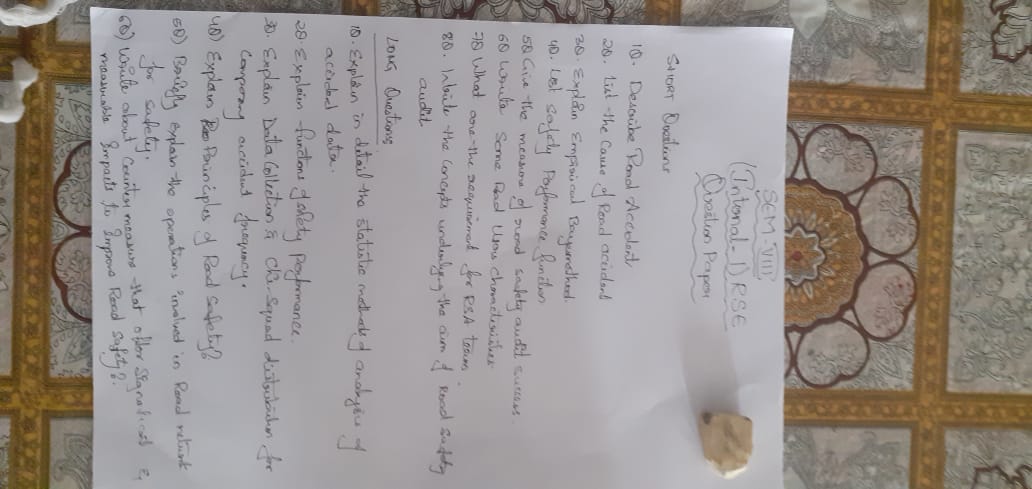 SEM-VIII
(Internal-1) RSE
Question Paper
SHORT Questions
1Q. Describe Road Accident
2Q. List the Cause of Road accident
3Q. Explain Empirical Bayesmethod.
4Q. List Safety Performance function
5Q Give the measure of road safety audit success.
6Q Write Some Road Users characteristics
7Q What are the requirement for RSA team.
8Q. Write the Concepts underlying the aim of Road Safety
audit
LONG Questions
1Q. Explain in detail the statistic methods of analysis of
accident data.
2Q Explain functions of safety performance.
3Q. Explain Data Collection & Chi-Squad distribution for
Comparing accident frequency.
4Q) Explain Principles of Road Safety?
5Q) Briefly explain the operations involved in Road network
for safety.
6Q) Write about Counter measure that offer Significant &
measurable Impacts to Improve Road Safety?